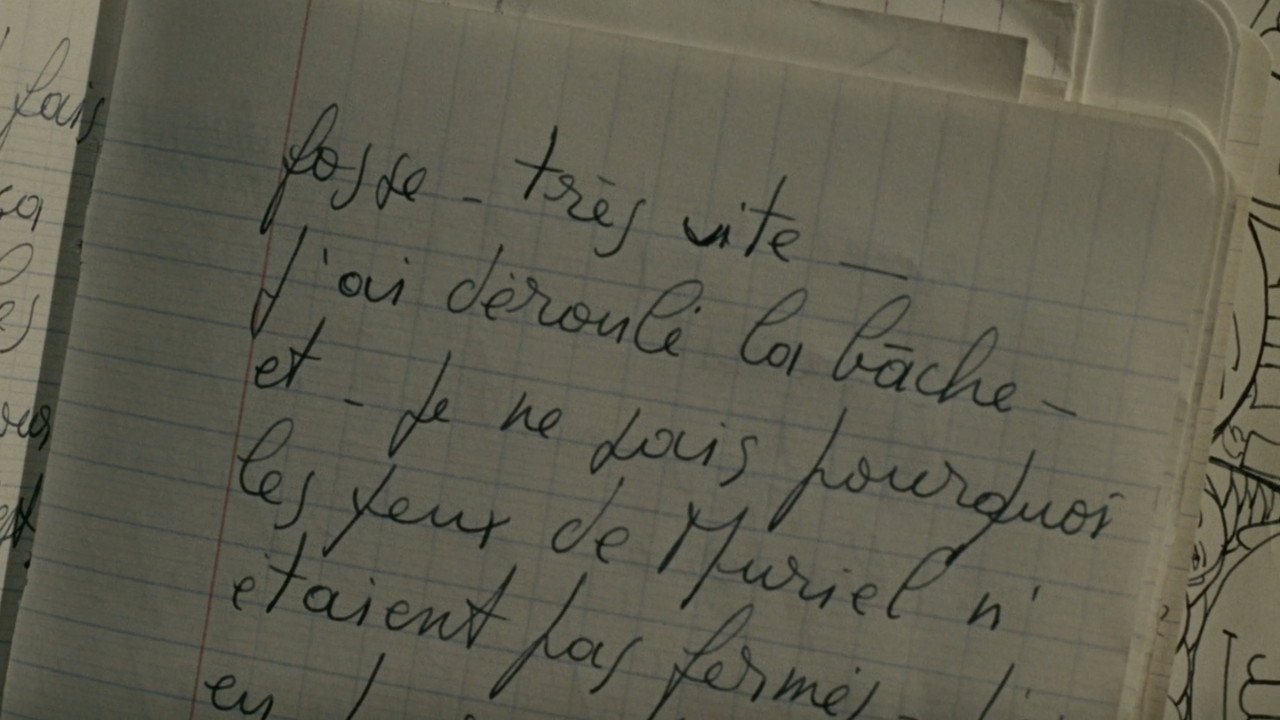 fais
fosse - très vite —
J'ai déroulé la bâche -
et - Je ne sais pourquoi
les yeux de Muriel n'
étaient pas fermés -
en